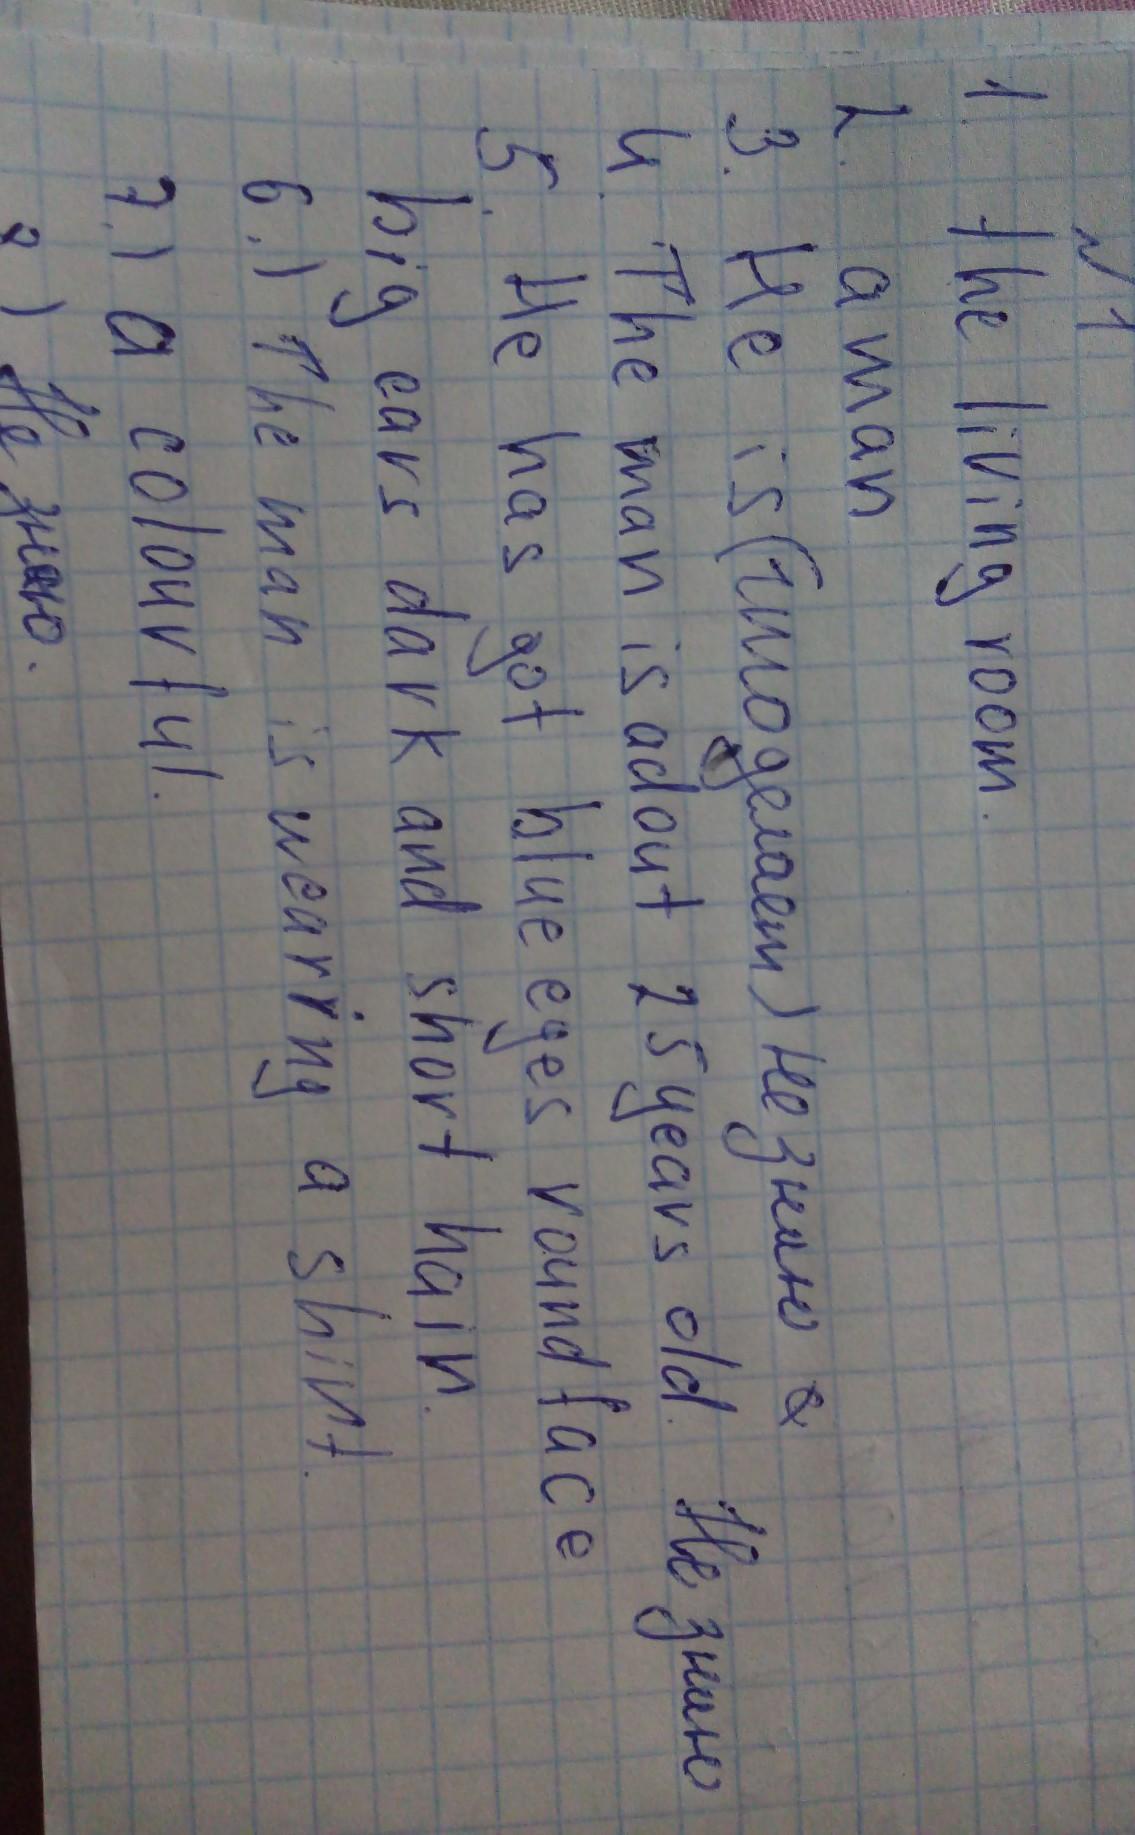 №1
1 the living room.
2. a man
3. He is (что делает) не знаю
4. The man is adout 25 years old. Не знаю
5. He has got blue eyes round face
big ears dark and short hair.
6.) The man is wearing a shirt.
7.) a colourful.
8) Не знаю.